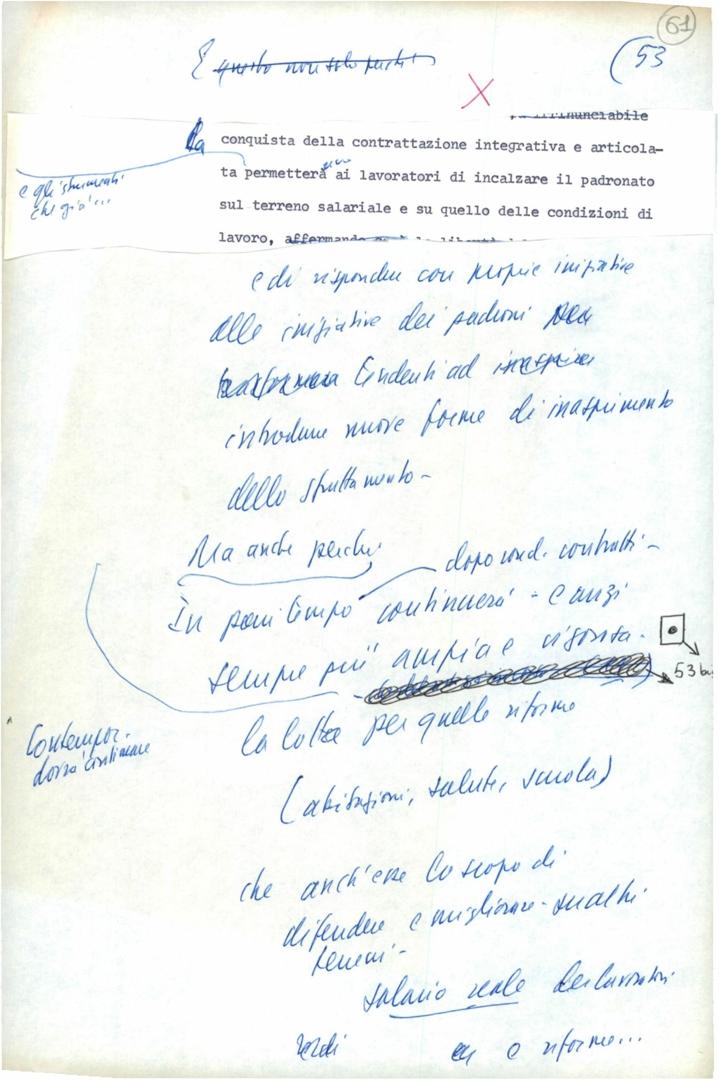 61
(53
E questo non solo perché
X
irrinunciabile
La conquista della contrattazione integrativa e articola-
ta permetterà ai lavoratori di incalzare il padronato
e gli strumenti
che già...
sul terreno salariale e su quello delle condizioni di
lavoro, affermando
e di rispondere con proprie iniziative
alle iniziative dei padroni
tendenti ad
introdurre nuove forme di inasprimento
dello sfruttamento -
Ma anche perché
dopo contratti -
In pari tempo continuerà - e anzi
sempre più ampia e vigorosa -
53 bis
la lotta per quelle riforme
Contempor.
dovrà continuare
(abitazioni, salute, scuola)
che anch'esse lo scopo di
difendere e migliorare - su altri
terreni -
salario reale dei lavoratori
e riforme...